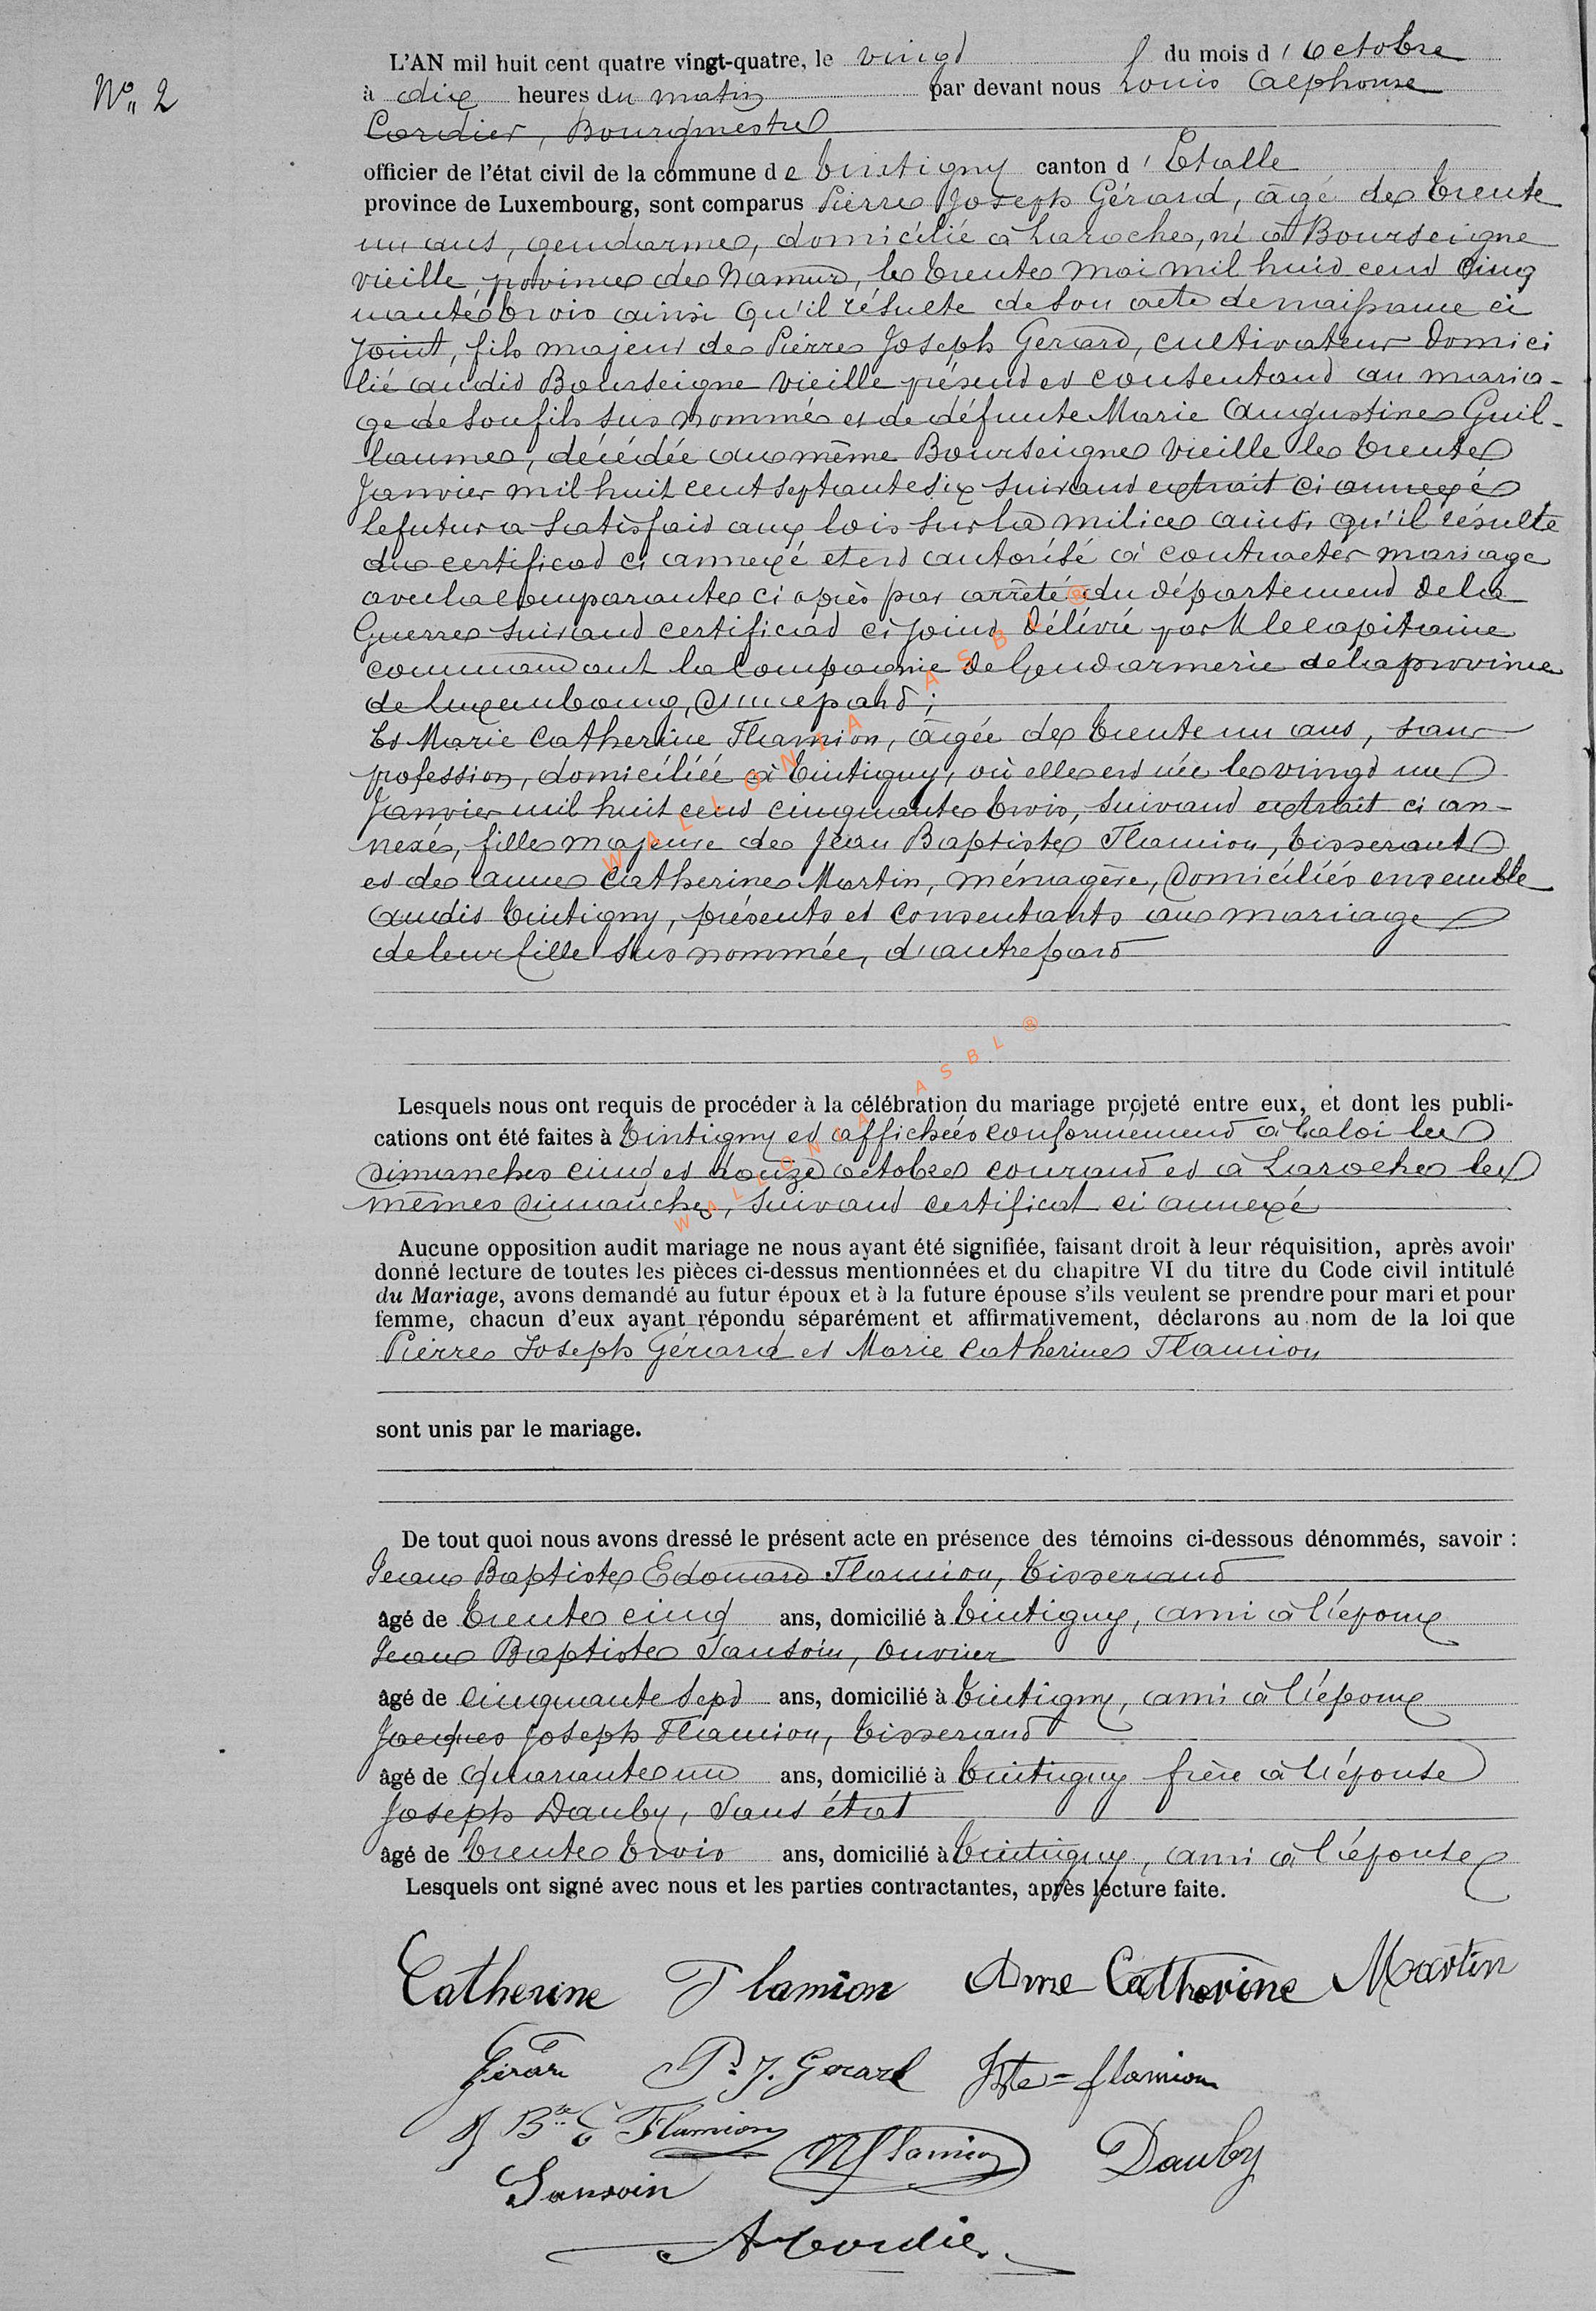 N° 2
L'AN mil huit cent quatre vingt-quatre, le vingt du mois d'octobre
à dix heures du matin par devant nous Louis Alphonse
Cordier, Bourgmestre
officier de l'état civil de la commune de Tintigny canton d'Etalle
province de Luxembourg, sont comparus Pierre Joseph Gérard, âgé de trente
un ans, gendarme, domicilié à Laroche, né à Bourseigne
vieille, province de Namur, le trente mai mil huit cent cinq
uante trois ainsi qu'il résulte de son acte de naissance ci
joint, fils majeur de Pierre Joseph Gerard, cultivateur domici
lié audit Bourseigne vieille présent et consentant au maria-
ge de son fils sus nommé et de défunte Marie Augustine Guil-
laume, décédée au même Bourseigne vieille le trente
Janvier mil huit cent septante six suivant extrait ci annexé
le futur a satisfait aux lois sur la milice ainsi qu'il résulte
du certificat ci annexé et est autorisé à contracter mariage
avec la comparante ci après par arrêté du département de la
Guerre suivant certificat ci joint délivré par M le capitaine
commandant la Compagnie de Gendarmerie de la province
de Luxembourg, d'une part;
Et Marie Catherine Flamion, âgée de trente un ans, sans
profession, domiciliée à Tintigny, où elle est née le vingt un
Janvier mil huit cent cinquante trois, suivant extrait ci an-
nexé, fille majeure de Jean Baptiste Flamion, tisserant
et de Anne Catherine Martin, ménagère, domiciliés ensemble
audit Tintigny, présents et consentants au mariage
de leur fille sus nommée, d'autre part
Lesquels nous ont requis de procéder à la célébration du mariage projeté entre eux, et dont les publi-
cations ont été faites à Tintigny et affichées conformément à la loi les
dimanches cinq et douze octobre courant et à Laroche les
mêmes dimanches, suivant certificat ci annexé
Aucune opposition audit mariage ne nous ayant été signifiée, faisant droit à leur réquisition, après avoir
donné lecture de toutes les pièces ci-dessus mentionnées et du chapitre VI du titre du Code civil intitulé
du Mariage, avons demandé au futur époux et à la future épouse s'ils veulent se prendre pour mari et pour
femme, chacun d'eux ayant répondu séparément et affirmativement, déclarons au nom de la loi que
Pierre Joseph Gérard et Marie Catherine Flamion
sont unis par le mariage.
De tout quoi nous avons dressé le présent acte en présence des témoins ci-dessous dénommés, savoir :
Jean Baptiste Edouard Flamion, tisserand
âgé de trente cinq ans, domicilié à Tintigny, ami à l'époux
Jean Baptiste Sansoin, ouvrier
âgé de cinquante sept ans, domicilié à Tintigny, ami à l'époux
Jacques Joseph Flamion, tisserand
âgé de quarante un ans, domicilié à Tintigny frère à l'épouse
Joseph Dauby, sans état
âgé de trente trois ans, domicilié à Tintigny, ami à l'épouse
Lesquels ont signé avec nous et les parties contractantes, après lecture faite.
Catherine Flamion Anne Catherine Martin
Gérard P. J. Gerard Flamion
J Bte E Flamion Flamion Dauby
Sansoin
A Cordier
WALLONIA ASBL ®
WALLONIA ASBL ®